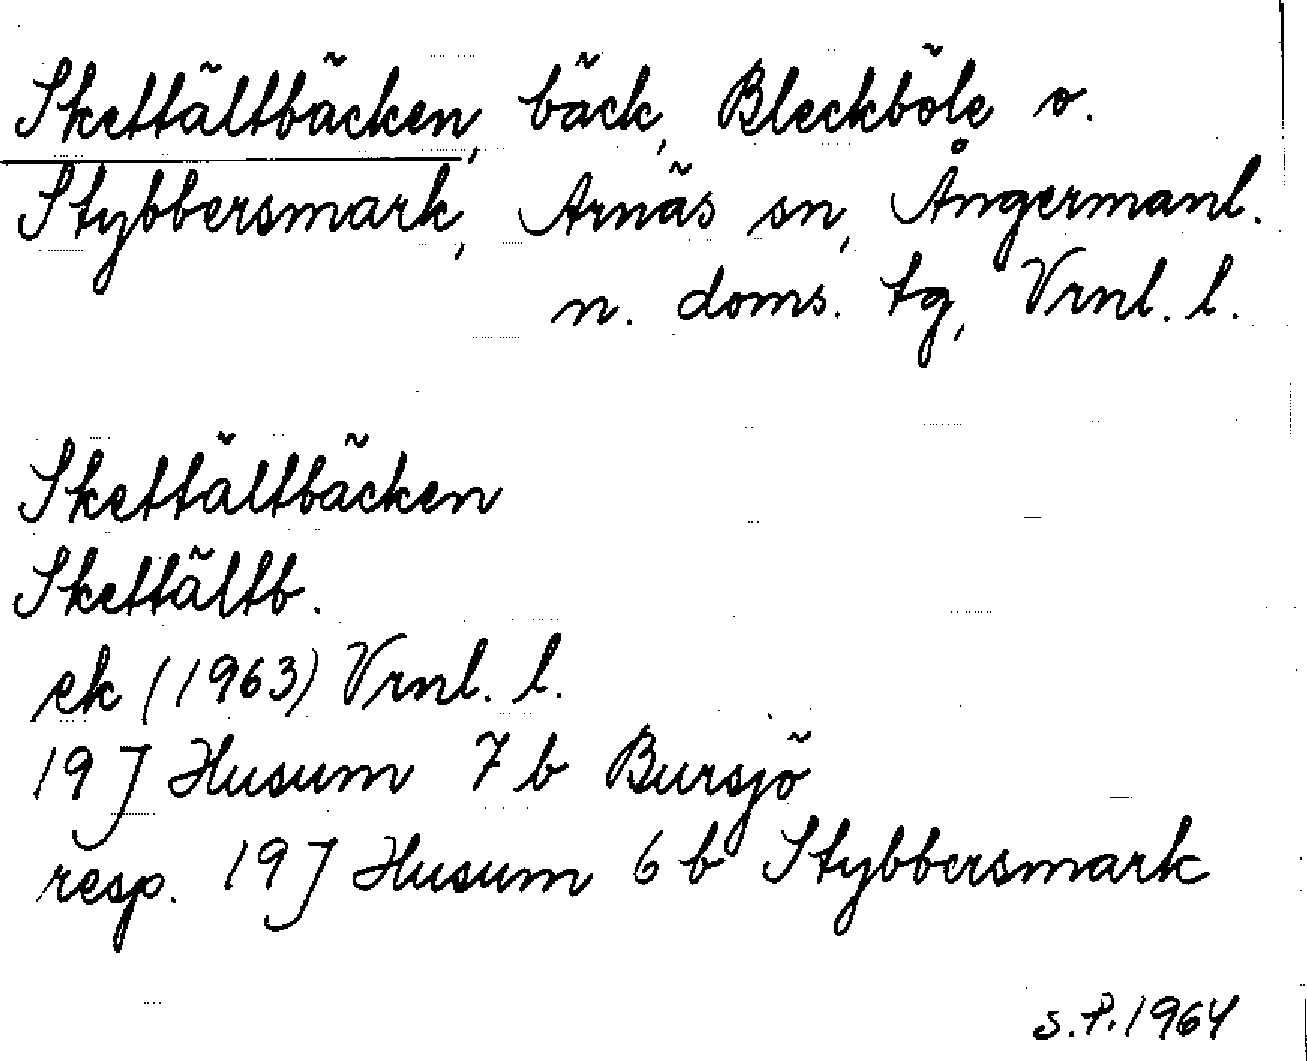 Skettältbäcken, bäck, Bleckböle o.
Stybbersmark, Arnäs sn, Ångermanl.
n. doms. tg, Vrnl. l.
Skettältbäcken
Skettältb.
ek (1963) Vrnl. l.
19 J Husum 7 b Bursjö
resp. 19 J Husum 6 b Stybbersmark
S.P. 1964